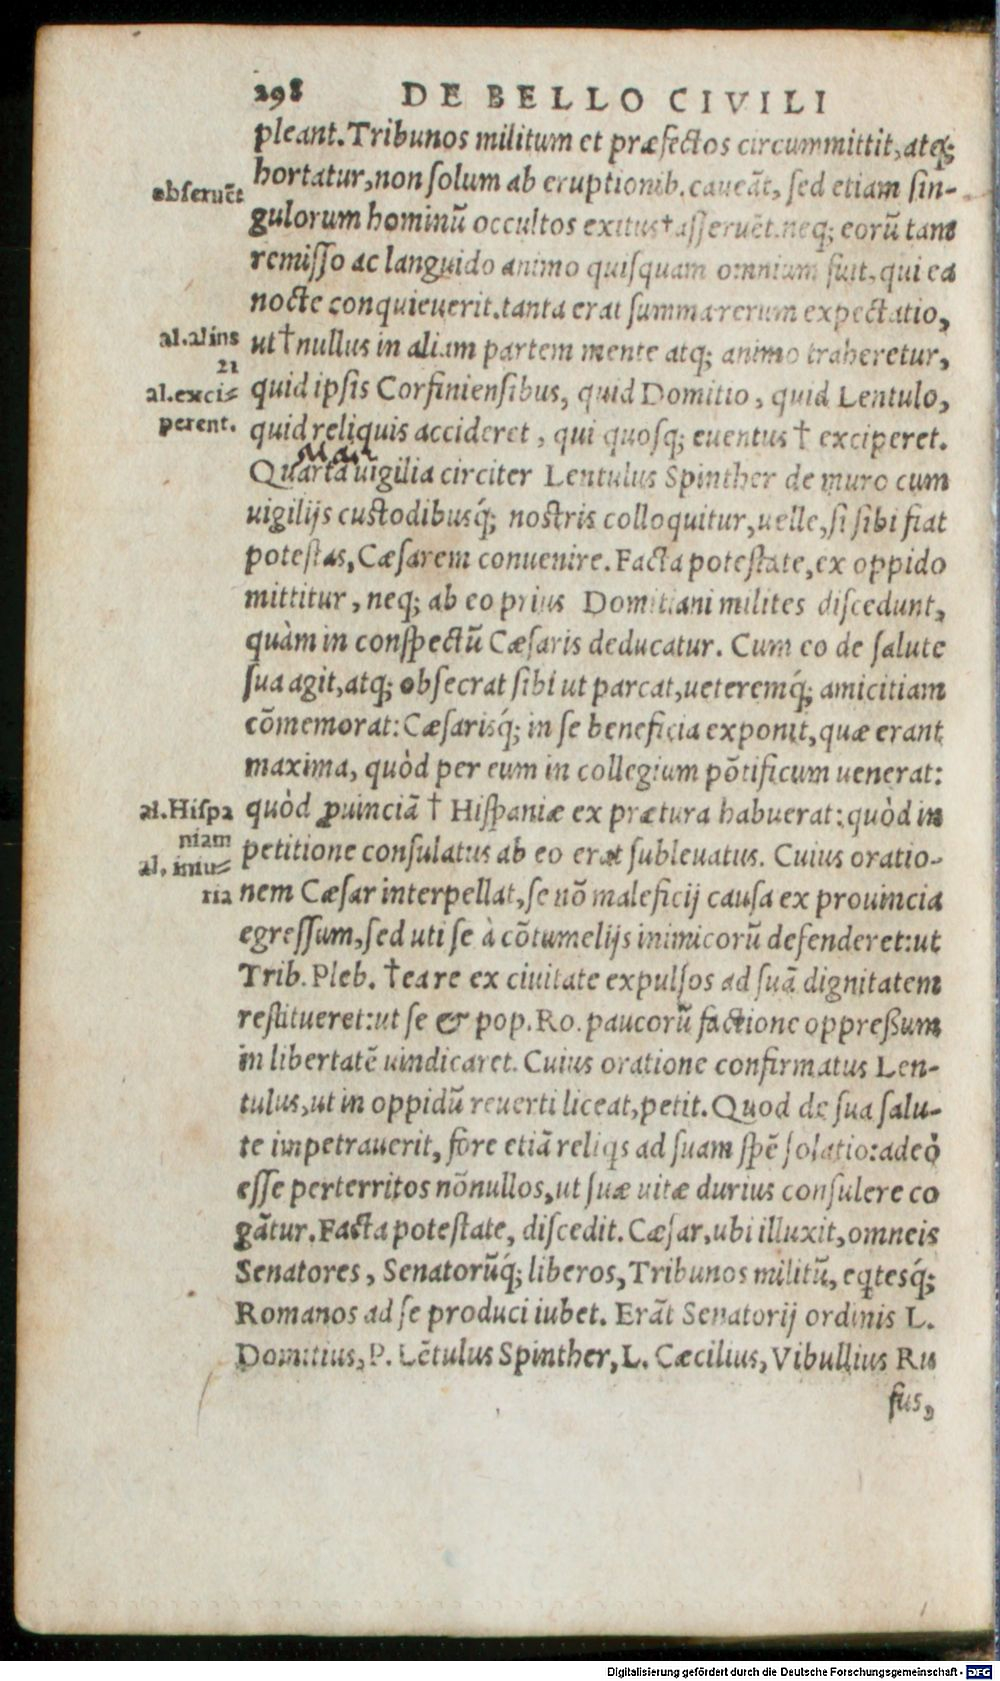 298 DE BELLO CIVILI
pleant. Tribunos militum et præfectos circummittit, atq́;
hortatur, non solum ab eruptionib. caueāt, sed etiam sin-
obseruēt
gulorum hominū occultos exitus † asseruēt. neq; eorū tam
remisso ac languido animo quisquam omnium fuit, qui ea
nocte conquieuerit. tanta erat summa rerum expectatio,
al. alius
ut † nullus in aliam partem mente atq; animo traheretur,
21
al. exci=
quid ipsis Corfiniensibus, quid Domitio, quid Lentulo,
perent.
quid reliquis accideret, qui quosq; euentus † exciperet.
Quarta uigilia circiter Lentulus Spinther de muro cum
uigilijs custodibusq́; nostris colloquitur, uelle, si sibi fiat
potestas, Cæsarem conuenire. Facta potestate, ex oppido
mittitur, neq; ab eo prius Domitiani milites discedunt,
quàm in conspectū Cæsaris deducatur. Cum eo de salute
sua agit, atq; obsecrat sibi ut parcat, ueteremq́; amicitiam
cōmemorat: Cæsarisq́; in se beneficia exponit, quæ erant
maxima, quòd per eum in collegium pōtificum uenerat:
al. Hispa
quòd ꝓuinciā † Hispaniæ ex prætura habuerat: quòd in
niam
petitione consulatus ab eo erat subleuatus. Cuius oratio-
al. iniu=
ria
nem Cæsar interpellat, se nō maleficij causa ex prouincia
egressum, sed uti se à cōtumelijs inimicorū defenderet: ut
Trib. Pleb. † ea re ex ciuitate expulsos ad suā dignitatem
restitueret: ut se & pop. Ro. paucorū factione oppreßum
in libertatē uindicaret. Cuius oratione confirmatus Len-
tulus, ut in oppidū reuerti liceat, petit. Quod de sua salu-
te impetrauerit, fore etiā reliqs ad suam spē solatio: adeò
esse perterritos nōnullos, ut suæ uitæ durius consulere co
gātur. Facta potestate, discedit. Cæsar, ubi illuxit, omneis
Senatores, Senatorūq́; liberos, Tribunos militū, eqtesq́;
Romanos ad se produci iubet. Erāt Senatorij ordinis L.
Domitius, P. Lētulus Spinther, L. Cæcilius, Vibullius Ru
fus,
Digitalisierung gefördert durch die Deutsche Forschungsgemeinschaft - DFG